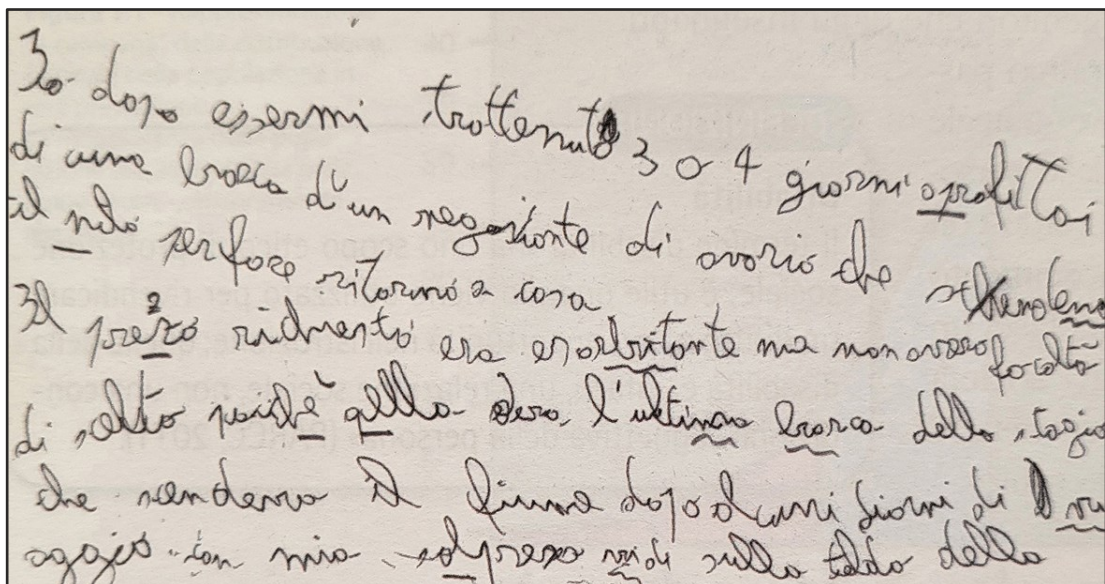 Io dopo essermi trattenuto 3 o 4 giorni aprofittai
di una barca d'un negoziante di avorio che
il nilo per fare ritorno a casa
Il prezo era esorbitante ma non avevo facoltà
di selta poichè qella l'ultima barca della stagio
che scendeva il fiume dopo alcuni giorni di
con mia solpresa vidi sulla tolda della